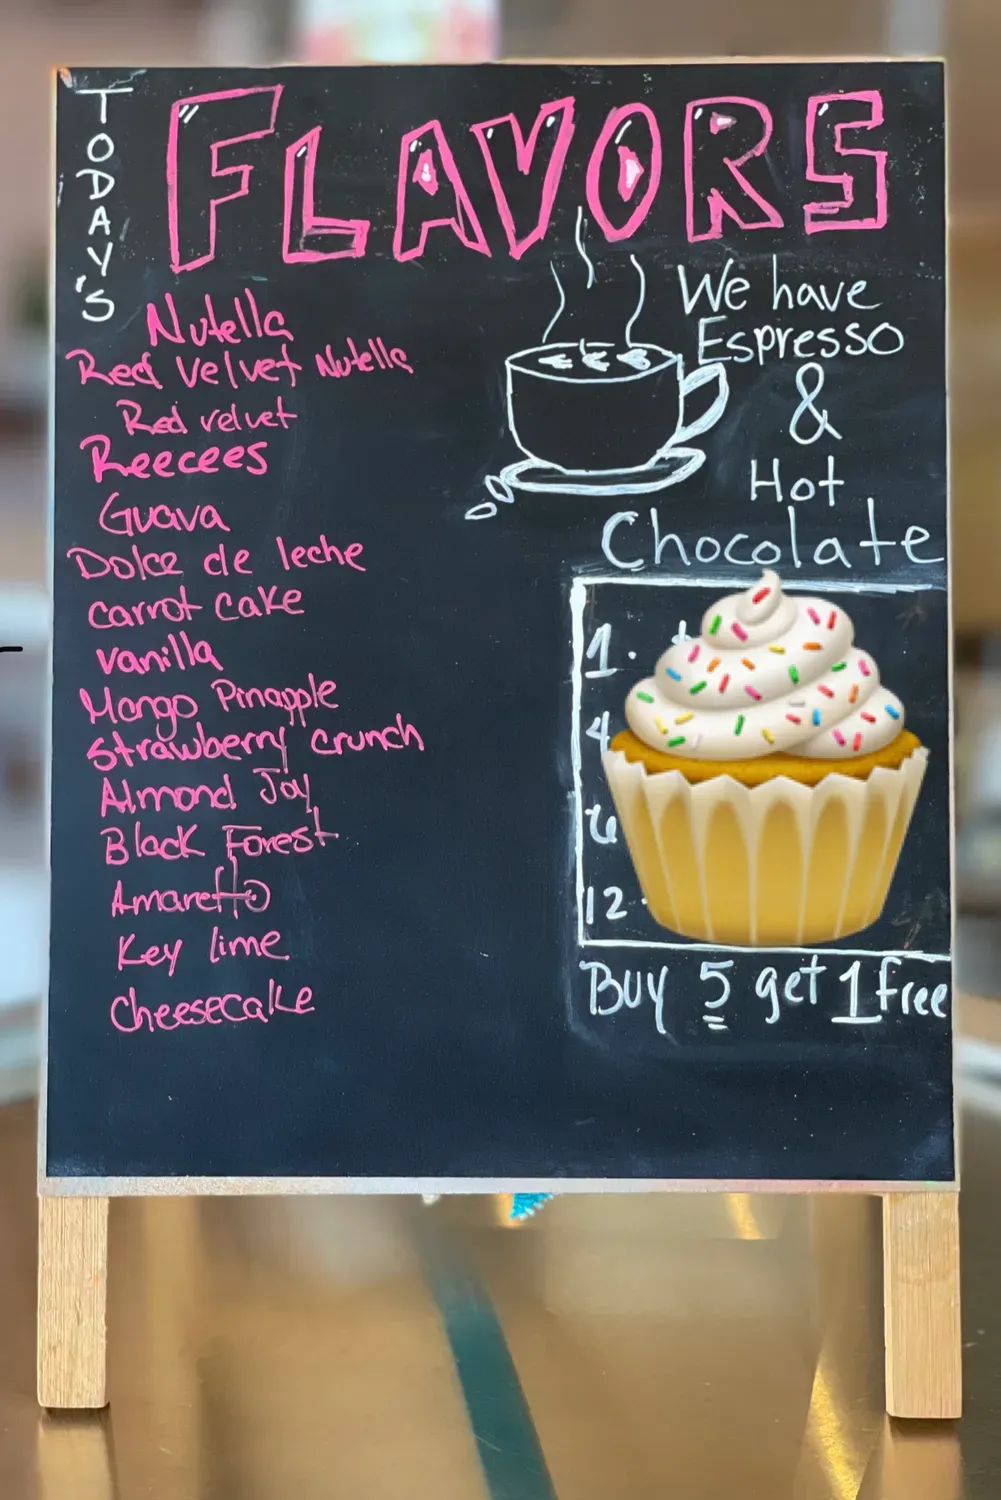 TODAY'S
FLAVORS
Nutella
Red Velvet Nutella
Red velvet
Reecees
Guava
Dolce de leche
Carrot Cake
Vanilla
Mango Pinapple
Strawberry Crunch
Almond Joy
Black Forest
Amaretto
Key lime
Cheesecake
We have
Espresso
&
Hot
Chocolate
1.
4
6
12.
Buy 5 get 1 free